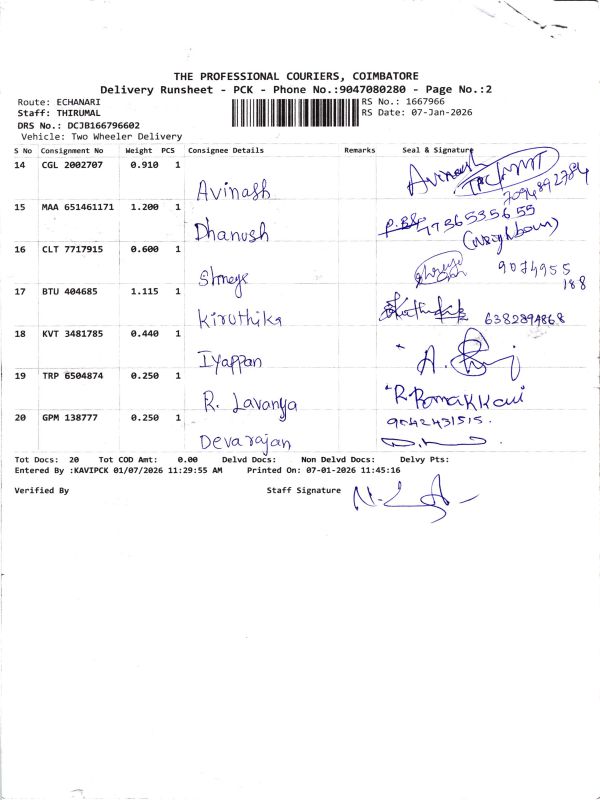 THE PROFESSIONAL COURIERS, COIMBATORE
Delivery Runsheet - PCK - Phone No.:9047080280 - Page No.:2
Route: ECHANARI
RS No.: 1667966
Staff: THIRUMAL
RS Date: 07-Jan-2026
DRS No.: DCJB166796602
Vehicle: Two Wheeler Delivery
S No Consignment No Weight PCS Consignee Details Remarks Seal & Signature
14 CGL 2002707 0.910 1 Avinash Avinash
7094892784
15 MAA 651461171 1.200 1 Dhanush 7736535655
(neighbour)
16 CLT 7717915 0.600 1 9074955
188
17 BTU 404685 1.115 1 Kiruthika 6382894868
18 KVT 3481785 0.440 1 Iyappan
19 TRP 6504874 0.250 1 R. Lavanya R. Ramakkani
20 GPM 138777 0.250 1 Devarajan 9042431515.
Tot Docs: 20 Tot COD Amt: 0.00 Delvd Docs: Non Delvd Docs: Delvy Pts:
Entered By :KAVIPCK 01/07/2026 11:29:55 AM Printed On: 07-01-2026 11:45:16
Verified By Staff Signature